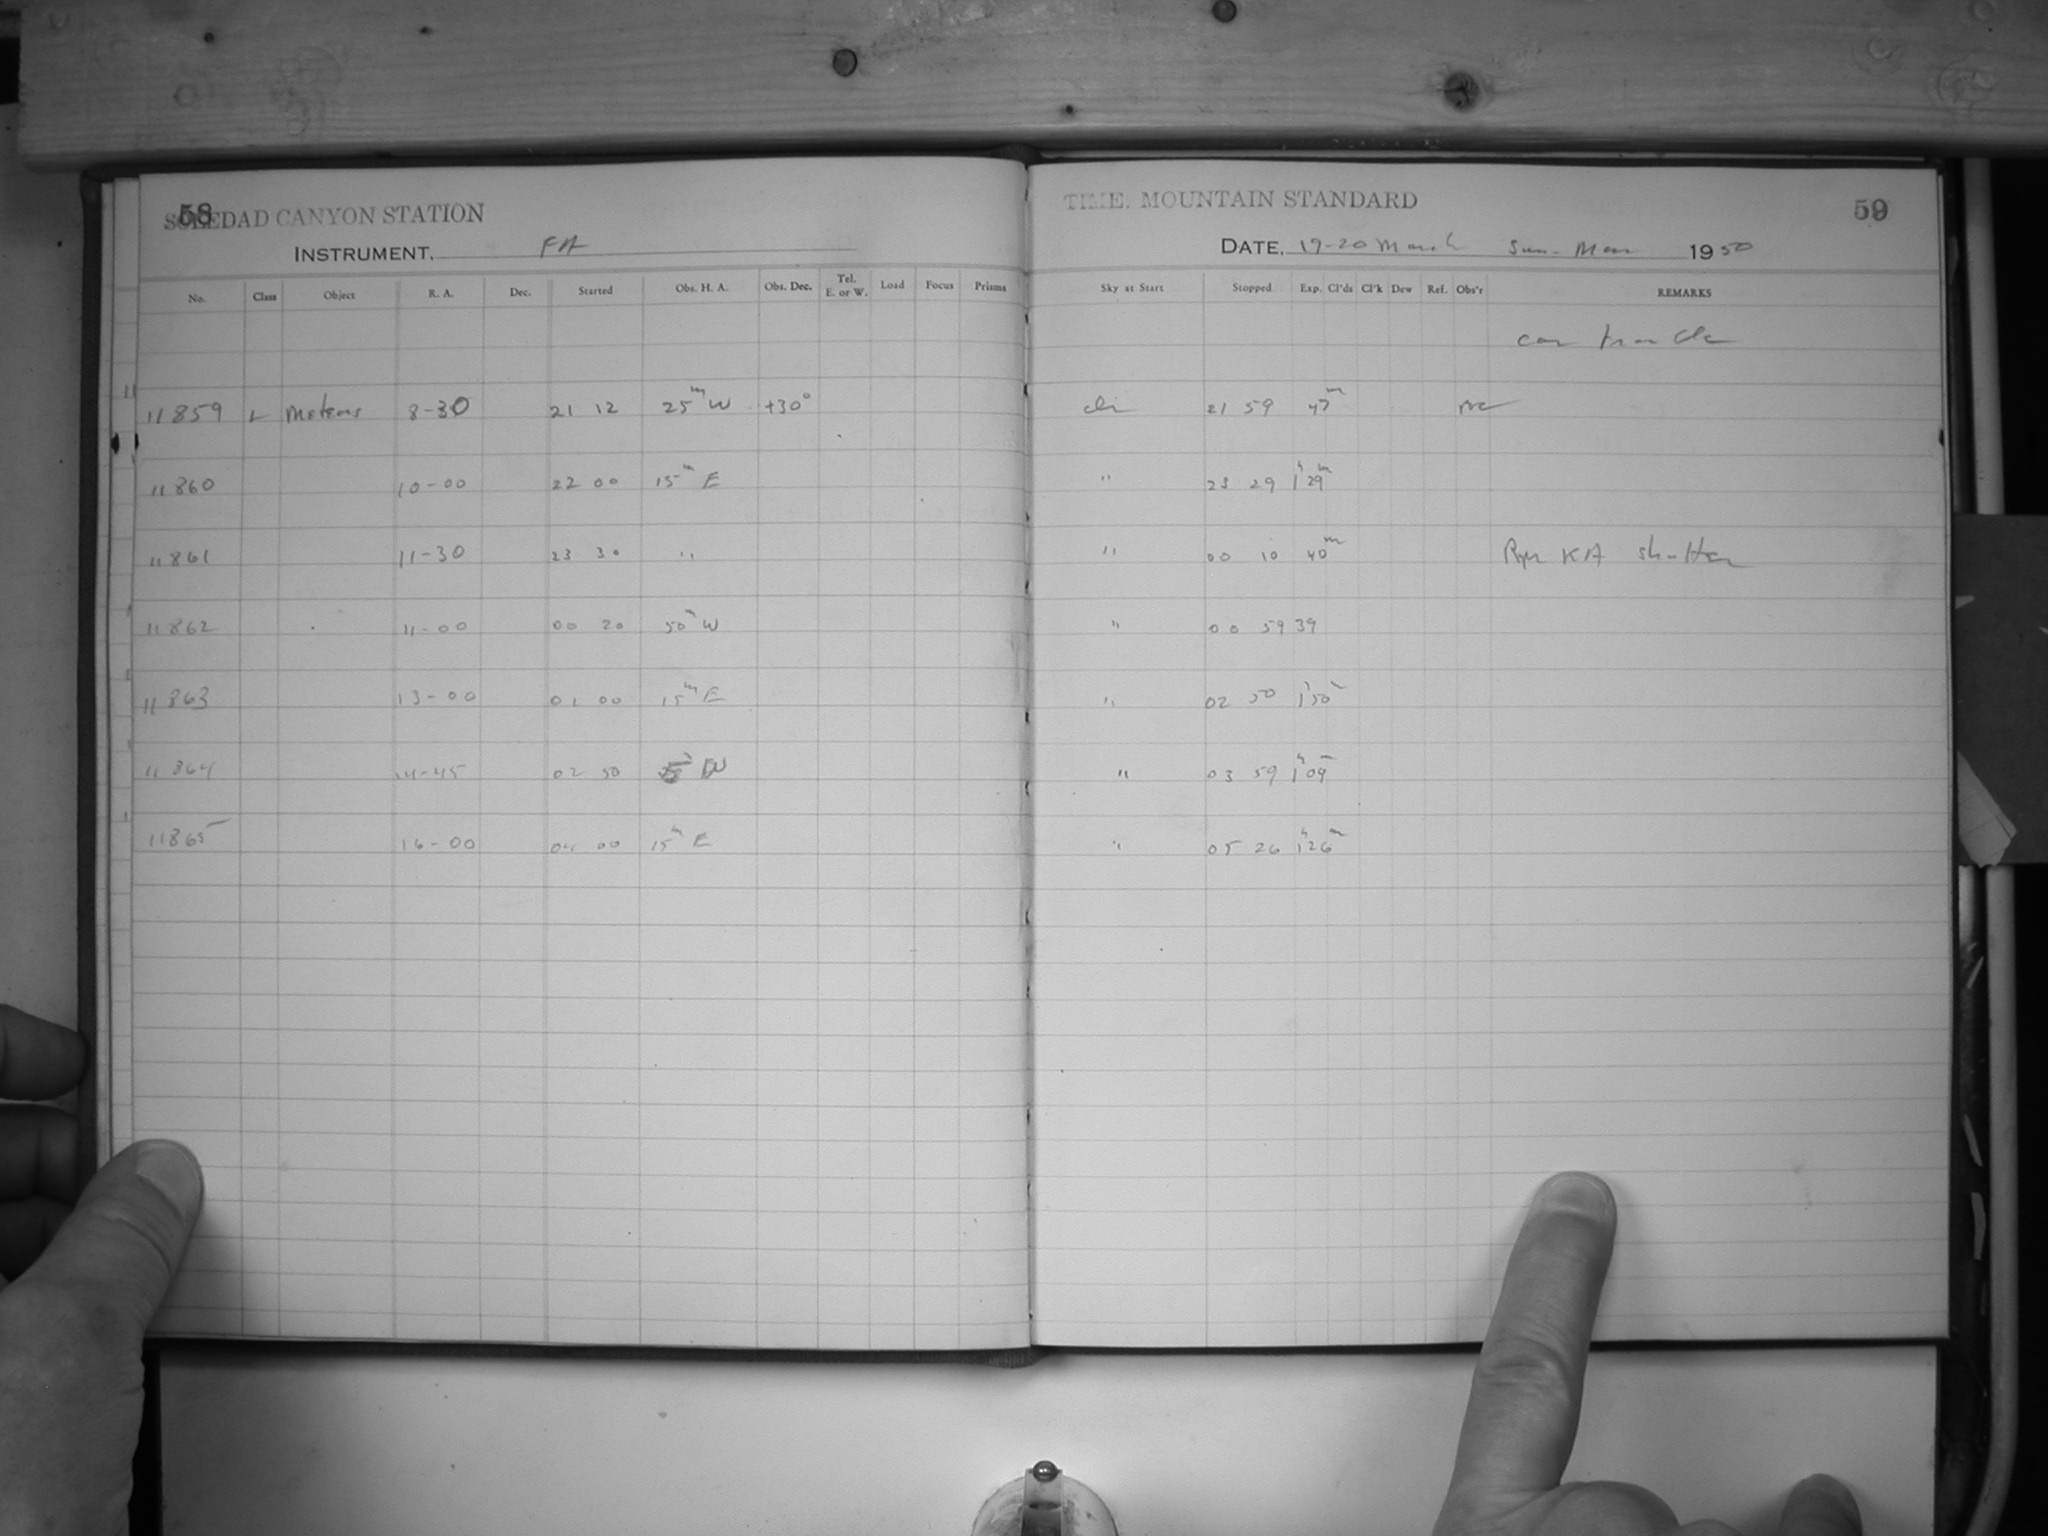 58
SOLEDAD CANYON STATION
INSTRUMENT. FA
No. Class Object R. A. Dec. Started Obs. H. A. Obs. Dec. Tel. E. or W. Load Focus Prisms
11859 L Meteors 8-30 21 12 25m W +30°
11860 10-00 22 00 15m E
11861 11-30 23 30 "
11862 11-00 00 20 50m W
11863 13-00 01 00 15m E
11864 14-45 02 50 W
11865 16-00 04 00 15m E
TIME. MOUNTAIN STANDARD
59
DATE, 19-20 March Sun-Mon 1950
Sky at Start Stopped Exp. Cl'ds Cl'k Dew Ref. Obs'r REMARKS
car trouble
21 59 47m
" 23 29 1h 29m
" 00 10 40m KA shutter
" 00 59 39
" 02 50 1h 50m
" 03 59 1h 09m
" 05 26 1h 26m